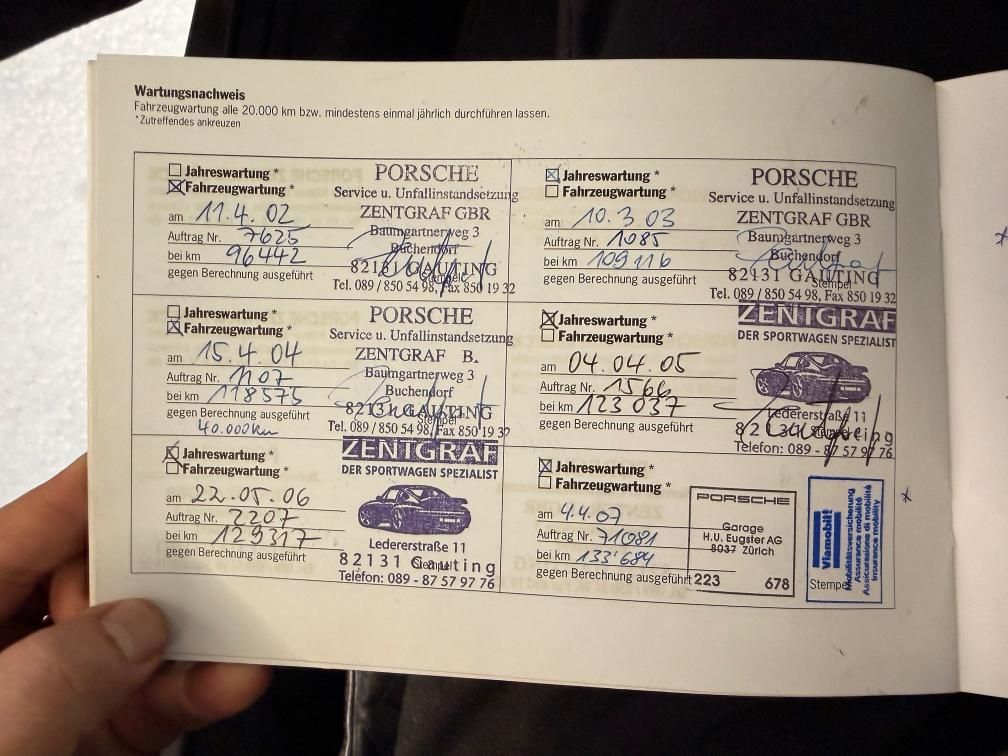 Wartungsnachweis
Fahrzeugwartung alle 20.000 km bzw. mindestens einmal jährlich durchführen lassen.
*Zutreffendes ankreuzen
Jahreswartung *
Fahrzeugwartung *
am 11.4.02
Auftrag Nr. 7625
bei km 96442
gegen Berechnung ausgeführt
PORSCHE
Service u. Unfallinstandsetzung
ZENTGRAF GBR
Baumgartnerweg 3
Buchendorf
82131 GAUTING
Stempel
Tel. 089 / 850 54 98, Fax 850 19 32
Jahreswartung *
Fahrzeugwartung *
am 10.3 03
Auftrag Nr. 1085
bei km 109116
gegen Berechnung ausgeführt
PORSCHE
Service u. Unfallinstandsetzung
ZENTGRAF GBR
Baumgartnerweg 3
Buchendorf
82131 GAUTING
Stempel
Tel. 089 / 850 54 98, Fax 850 19 32
Jahreswartung *
Fahrzeugwartung *
am 15.4.04
Auftrag Nr. 1107
bei km 118575
gegen Berechnung ausgeführt
40.000km
PORSCHE
Service u. Unfallinstandsetzung
ZENTGRAF B.
Baumgartnerweg 3
Buchendorf
82131 GAUTING
Stempel
Tel. 089 / 850 54 98, Fax 850 19 32
Jahreswartung *
Fahrzeugwartung *
am 04.04.05
Auftrag Nr. 1566
bei km 123 037
gegen Berechnung ausgeführt
ZENTGRAF
DER SPORTWAGEN SPEZIALIST
Ledererstraße 11
82131 Gauting
Telefon: 089 - 87 57 97 76
Jahreswartung *
Fahrzeugwartung *
am 22.05.06
Auftrag Nr. 2207
bei km 129317
gegen Berechnung ausgeführt
ZENTGRAF
DER SPORTWAGEN SPEZIALIST
Ledererstraße 11
82131 Gauting
Stempel
Telefon: 089 - 87 57 97 76
Jahreswartung *
Fahrzeugwartung *
am 4.4.07
Auftrag Nr. 71081
bei km 133'684
gegen Berechnung ausgeführt
PORSCHE
Garage
H.U. Eugster AG
8037 Zürich
223 678
Stempel
Viamobil
Mobilitätsversicherung
Assurance mobilité
Assicurazione di mobilità
Insurance mobility